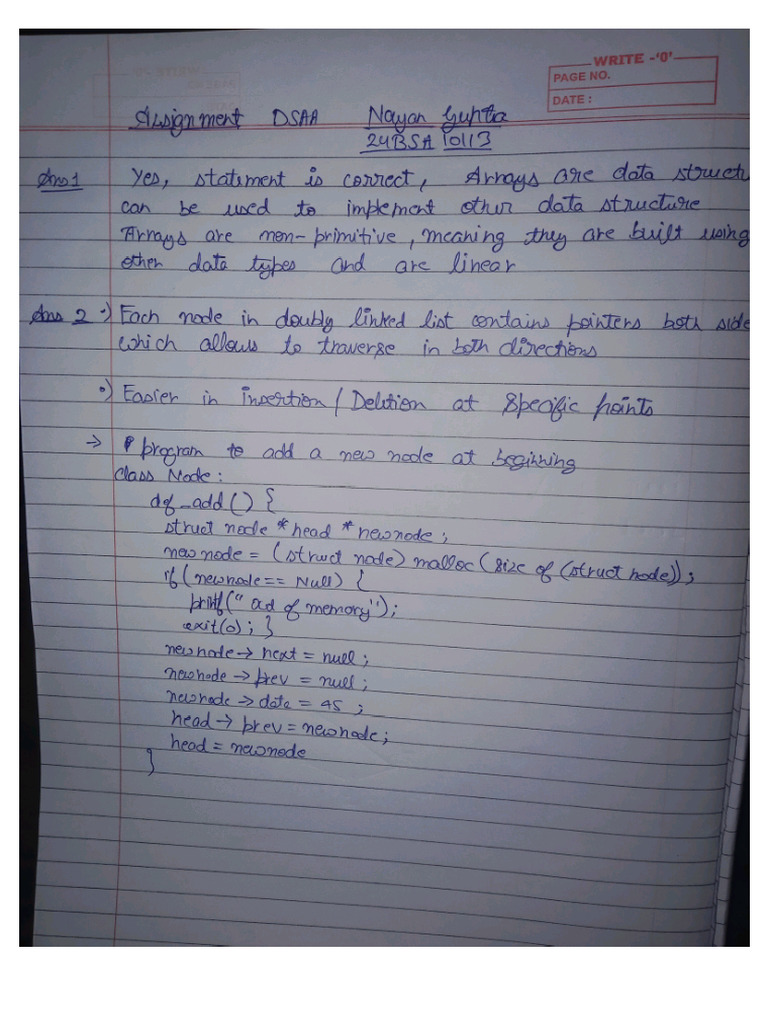 WRITE -'0'
PAGE NO.
DATE :
Assignment DSAA Nayan Gupta
24BSA10113
Ans 1 Yes, statement is correct, Arrays are data structu
can be used to implement other data structure
Arrays are non-primitive, meaning they are built using
other data types and are linear
Ans 2 •) Each node in doubly linked list contains pointers both side
which allows to traverse in both directions
•) Easier in insertion / Deletion at specific points
→ program to add a new node at beginning
Class Node :
def_add () {
struct node *head *newnode ;
newnode = (struct node) malloc (size of (struct node)) ;
if (newnode == Null) {
printf (" out of memory");
exit(0) ; }
newnode → next = null ;
newnode → prev = null ;
newnode → data = 45 ;
head → prev = newnode ;
head = newnode
}